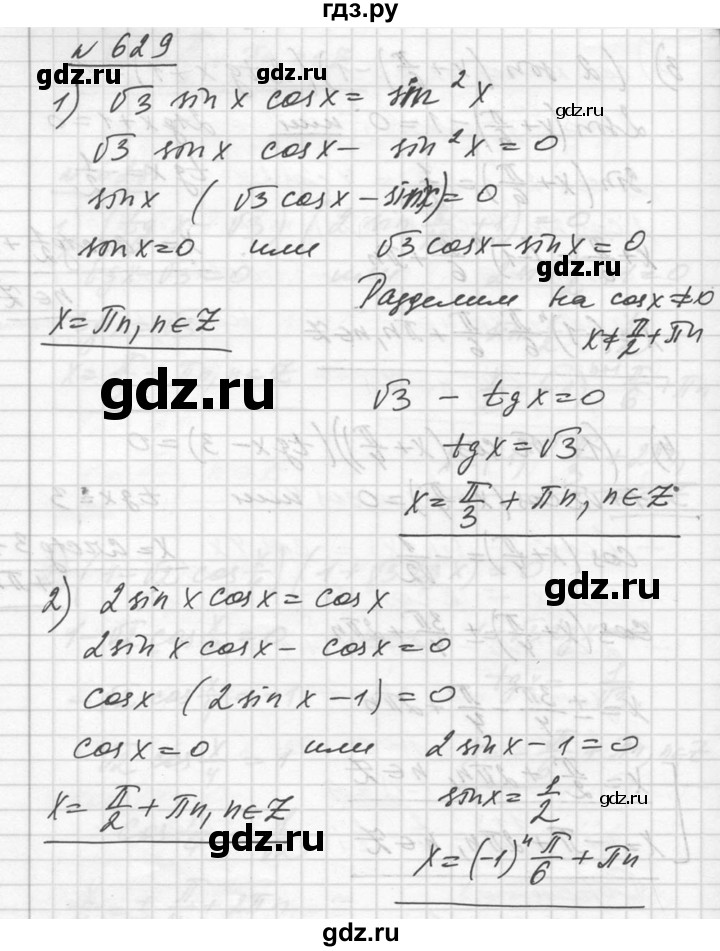 гдз.ру
№ 629
gdz.ru
1) √3 sin x cos x = sin²x
gdz.ru
√3 sin x cos x - sin²x = 0
sin x (√3 cos x - sin x) = 0
gdz.ru
sin x = 0 или √3 cos x - sin x = 0
gdz.ru
Разделим на cos x ≠ 0
x = πn, n ∈ Z
x ≠ π/2 + πn
gdz.ru
√3 - tg x = 0
tg x = √3
x = π/3 + πn, n ∈ Z
gdz.ru
2) 2 sin x cos x = cos x
2 sin x cos x - cos x = 0
cos x (2 sin x - 1) = 0
cos x = 0 или 2 sin x - 1 = 0
x = π/2 + πn, n ∈ Z
sin x = 1/2
gdz.ru
gdz.ru
x = (-1)ⁿ π/6 + πn
gdz.ru
гдз.ру